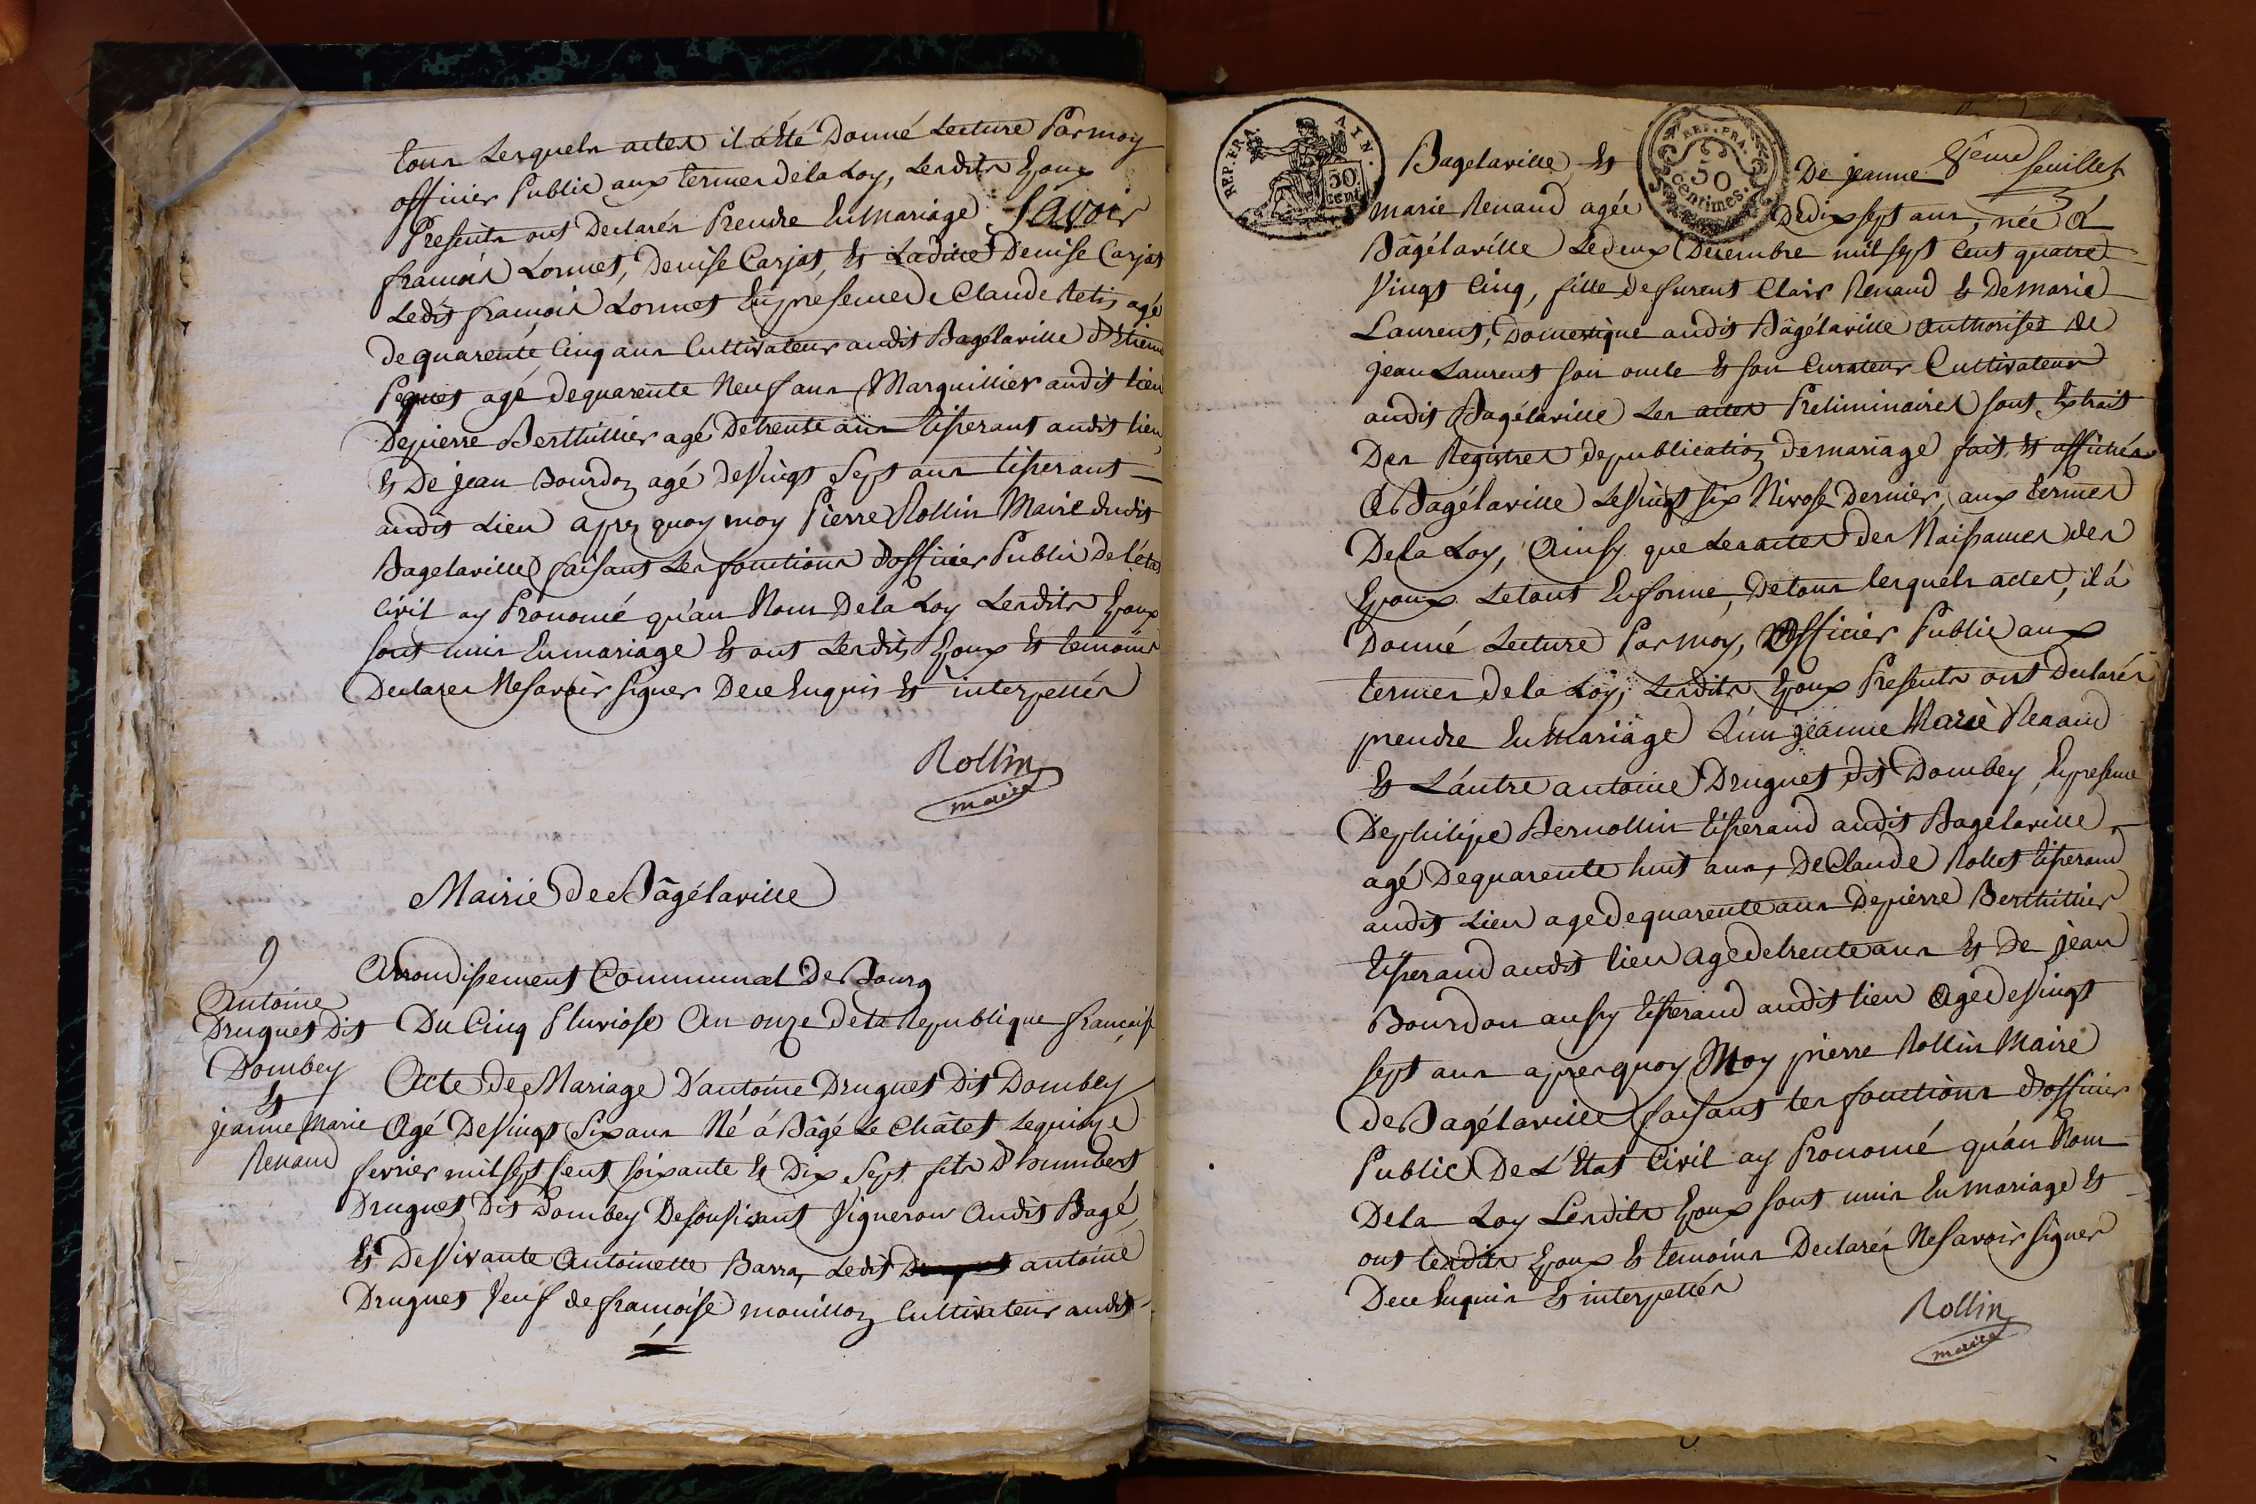 tous Lesquels actes il á Eté Donné Lecture Par moy
officier Public aux termes de la Loy, Lesdits Epoux
Presents ont Declarés Prendre En mariage Savoir
françois Lornet, Denise Carjat, Et Ladite Denise Carjat
Ledit françois Lornet En presence de Claude Retis agé
de quarente Cinq ans Cultivateur audit Bagélaville D'Etienne
agé de quarente Neuf ans Marguillier audit lieu
De pierre Berthillier agé De trente ans tisserant audit lieu,
Et De jean Bourdon agé de Vingt Sept ans tisserant
audit Lieu apres quoy moy Pierre Rollin Maire dudit
Bagelaville faisant Les fonctions D'officier Public De L'état
Civil ay Prononcé qu'au Nom De la Loy Lesdits Epoux
sont unis En mariage Et ont Lesdits Epoux Et temoins
Declarer Ne Savoir signer De ce Enquis Et interpellés
Rollin
maire
Mairie de Bâgélaville
9
Arrondissement Communal de Bourg
Antoine
Druguet Dit
Dombey
Et
jeanne Marie
Renaud
Du Cinq Pluviose An onze de la Republique française
Acte de Mariage D'antoine Druguet Dit Dombey
Agé De Vingt Six ans Né á Bâgé Le Châtel Le quinze
fevrier mil sept Cent soixante Et Dix Sept fils D'humbert
Druguet Dit Dombey De son Vivant Vigneron Audit Bagé,
Et De Vivante Antoinette Barra, Ledit antoine
Druguet Veuf de françoise mouillon Cultivateur audit
REP. FRA. AIN.
50 cent
REP. FRA.
50
centimes.
8eme feuillet
Bagelaville Et De jeanne
marie Renaud agée De dix sept ans, née á
Bâgélaville Le deux Decembre mil sept Cent quatre
Vingt Cinq, fille de furent Clair Renaud Et De marie
Laurent, Domestique audit Bâgélaville Authorisée de
jean Laurent son oncle Et son Curateur Cultivateur
audit Bagélaville Les actes Preliminaires sont Extrait
Des Registres de publication de mariage fait Et affichés
á Bagélaville Le Vingt six Nivose Dernier, aux termes
De la Loy, Ainsy que Les actes des Naissances des
Epoux Le tout En forme, De tous lesquels actes, il á
Donné Lecture Par moy, Officier Public aux
termes de la Loy, Lesdits Epoux Presents ont Declarés
prendre En Mariage L'un jeanne Marie Renaud
Et L'autre antoine Druguet dit Dombey, En presence
De philipe Bernollin tisserand audit Bagélaville
agé De quarente huit ans, De Claude Rollet tisserand
audit Lieu age de quarente ans De pierre Berthillier
tisserand audit lieu age de trente ans Et De jean
Bourdon aussy tisserand audit lieu Age de Vingt
sept ans apres quoy Moy pierre Rollin Maire
de Bagélaville faisant les fonctions D'officier
Public De L'Etat Civil ay Prononcé qu'au Nom
De la Loy Lesdits Epoux sont unis En mariage Et
ont lesdits Epoux Et temoins Declarés Ne Savoir signer
De ce Enquis Et interpellés
Rollin
maire